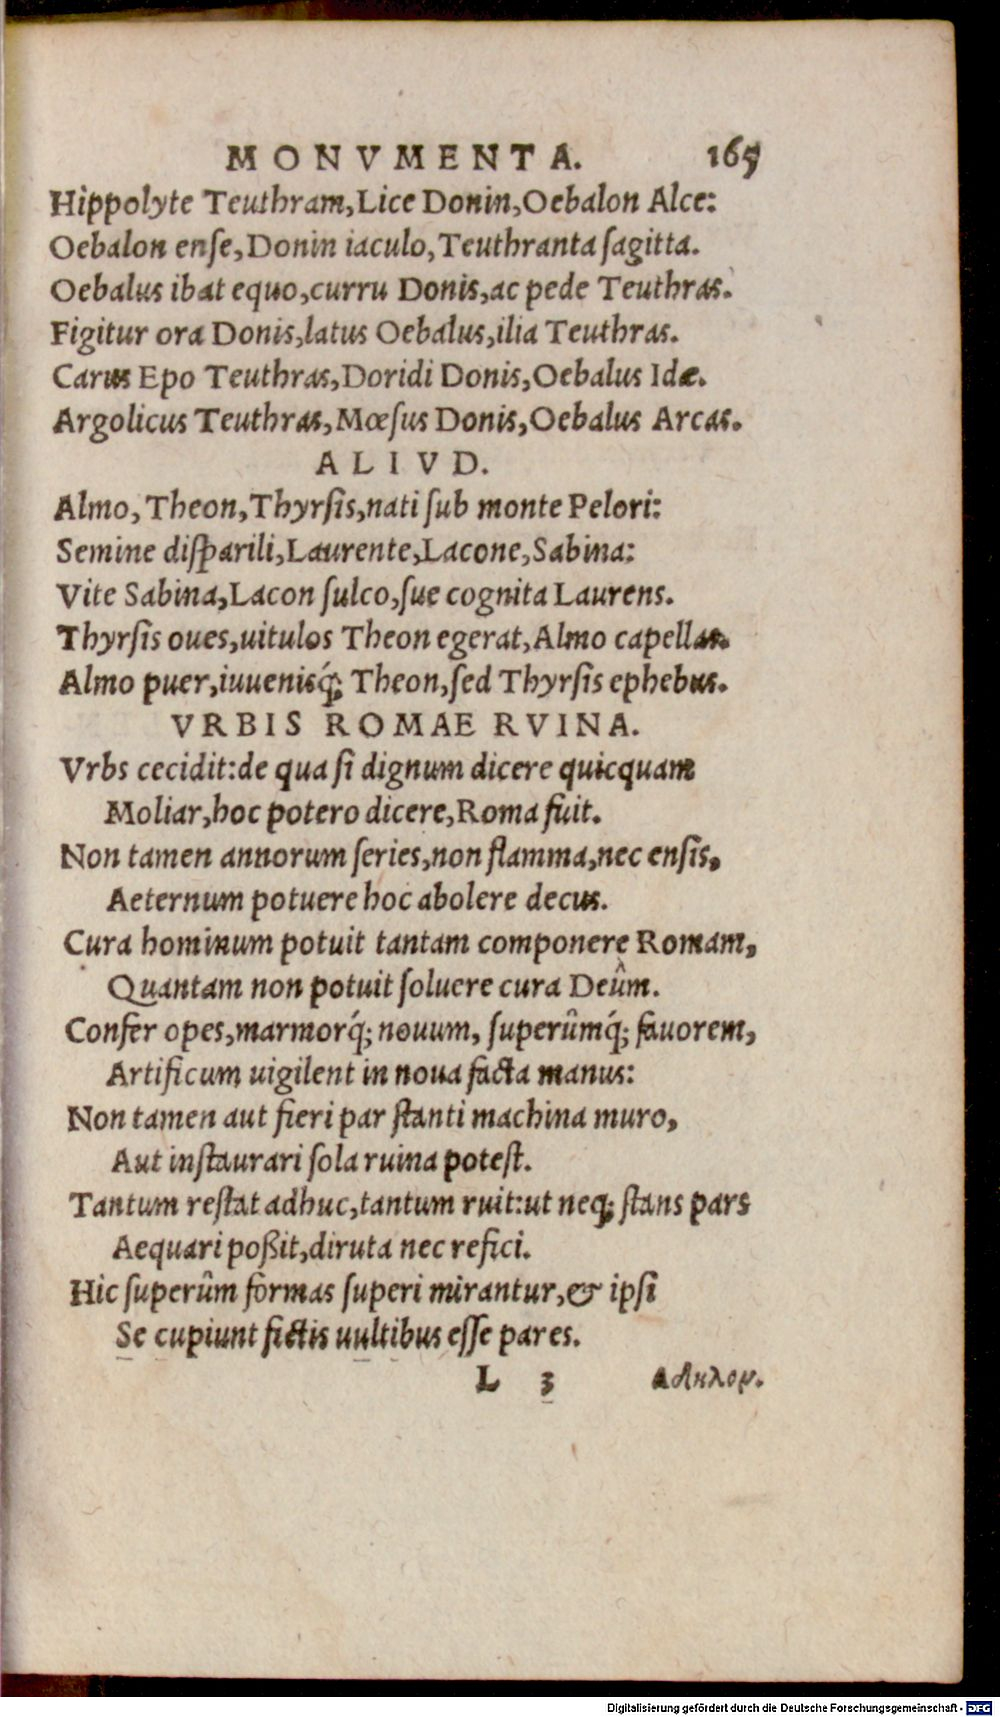 MONVMENTA. 165
Hippolyte Teuthram,Lice Donin,Oebalon Alce:
Oebalon ense,Donin iaculo,Teuthranta sagitta.
Oebalus ibat equo,curru Donis,ac pede Teuthras.
Figitur ora Donis,latus Oebalus,ilia Teuthras.
Carus Epo Teuthras,Doridi Donis,Oebalus Idæ.
Argolicus Teuthras,Mœsus Donis,Oebalus Arcas.
ALIVD.
Almo, Theon,Thyrsis,nati sub monte Pelori:
Semine disparili,Laurente,Lacone,Sabina:
Vite Sabina,Lacon sulco,sue cognita Laurens.
Thyrsis oues,uitulos Theon egerat,Almo capellas.
Almo puer,iuuenisq́; Theon,sed Thyrsis ephebus.
VRBIS ROMAE RVINA.
Vrbs cecidit:de qua si dignum dicere quicquam
Moliar,hoc potero dicere,Roma fuit.
Non tamen annorum series,non flamma,nec ensis,
Aeternum potuere hoc abolere decus.
Cura hominum potuit tantam componere Romam,
Quantam non potuit soluere cura Deûm.
Confer opes,marmorq́; nouum, superûmq́; fauorem,
Artificum uigilent in noua facta manus:
Non tamen aut fieri par stanti machina muro,
Aut instaurari sola ruina potest.
Tantum restat adhuc,tantum ruit:ut neq; stans pars
Aequari poßit,diruta nec refici.
Hic superûm formas superi mirantur,& ipsi
Se cupiunt fictis uultibus esse pares.
L 3 αδηλον.
Digitalisierung gefördert durch die Deutsche Forschungsgemeinschaft - DFG